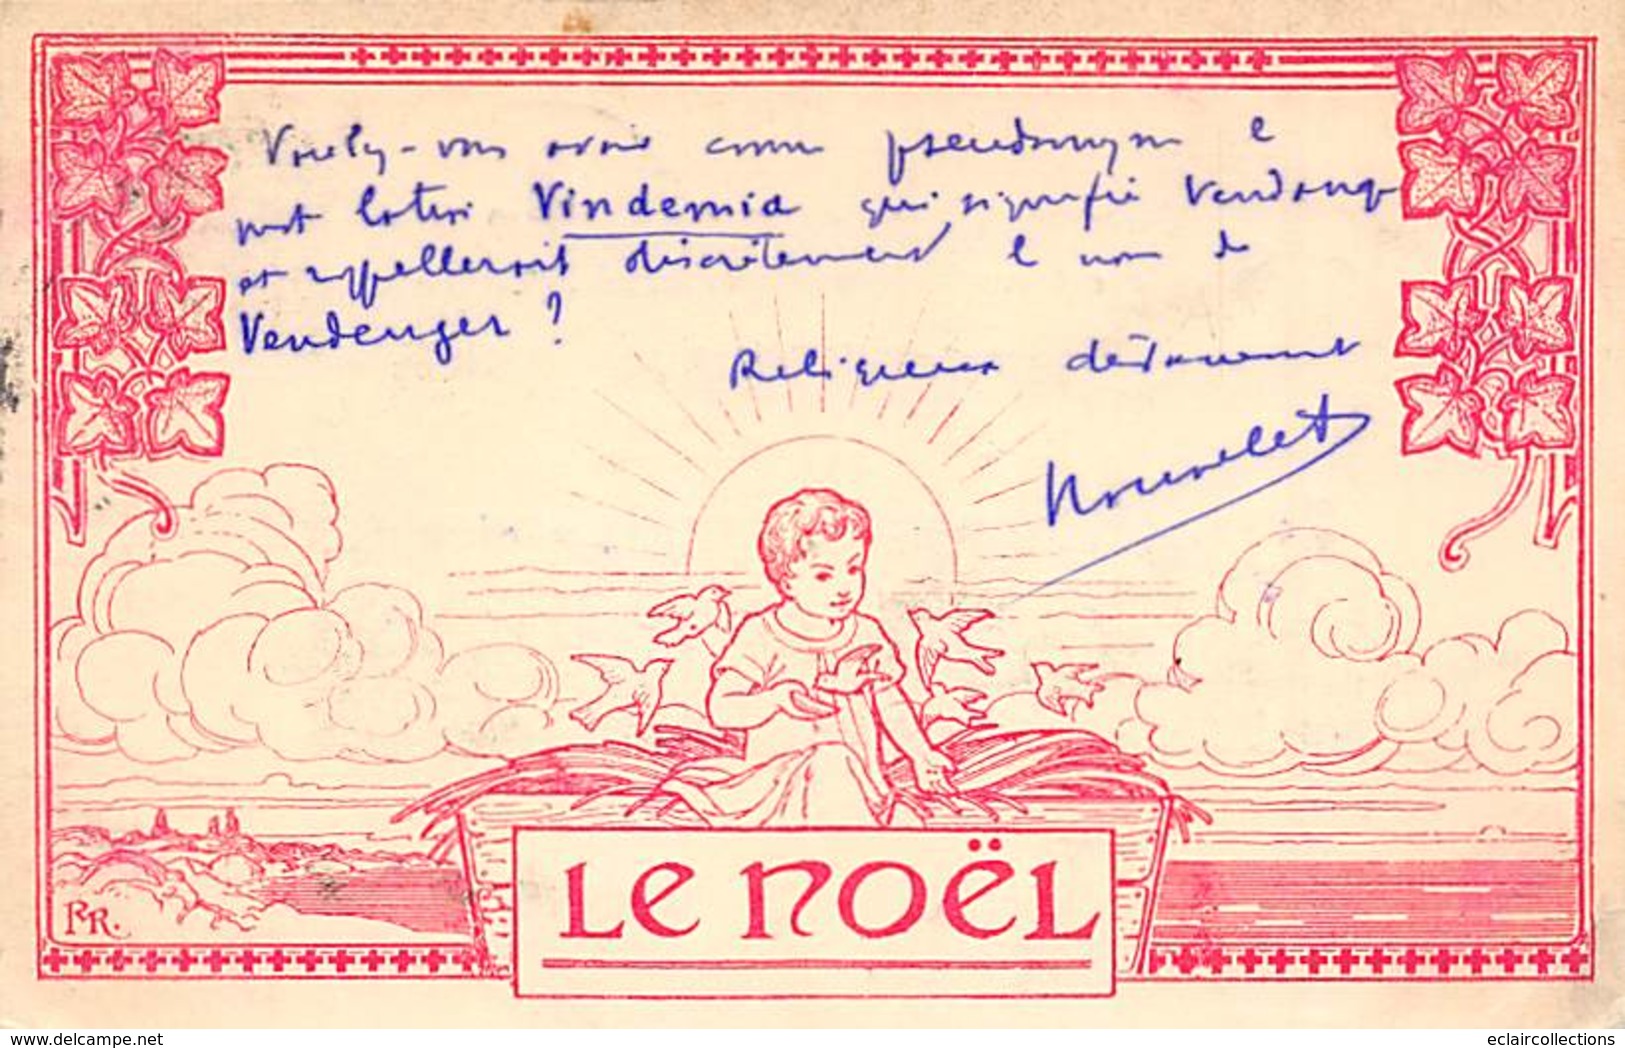 Voulez-vous avoir comme pseudonyme le
mot latin Vindemia qui signifie Vendange
et rappellerait discrètement le nom de
Vendenger ?
Religieux dévouement
Nouvelet
LE NOËL
RR.
www.delcampe.net
eclaircollections